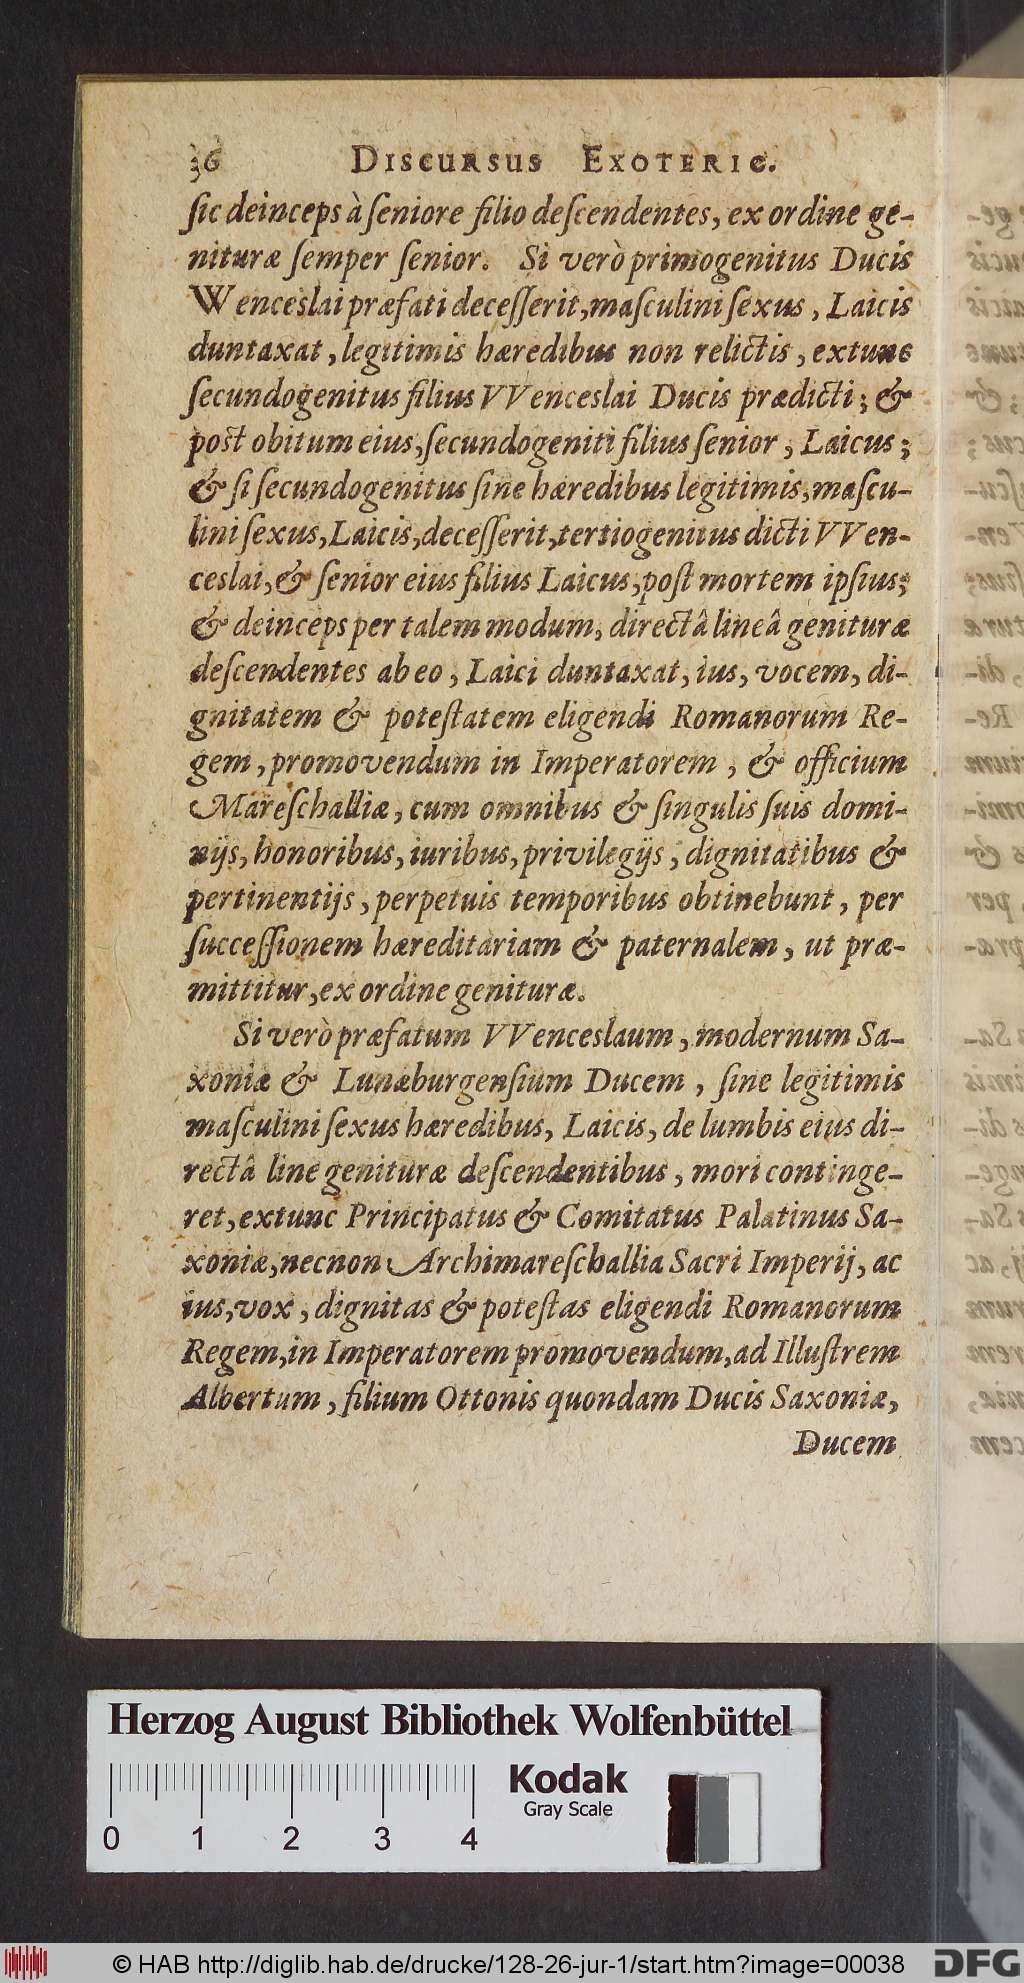 36 DISCURSUS EXOTERIC.
ſic deinceps à ſeniore filio deſcendentes, ex ordine ge-
nituræ ſemper ſenior. Si verò primogenitus Ducis
Wenceslai præfati deceſſerit, maſculini ſexus, Laicis
duntaxat, legitimis hæredibus non relictis, extunc
ſecundogenitus filius VVenceslai Ducis prædicti; &
poſt obitum eius, ſecundogeniti filius ſenior, Laicus;
& ſi ſecundogenitus ſine hæredibus legitimis, maſcu-
lini ſexus, Laicis, deceſſerit, tertiogenitus dicti VVen-
ceslai, & ſenior eius filius Laicus, poſt mortem ipſius;
& deinceps per talem modum, directâ lineâ genituræ
deſcendentes ab eo, Laici duntaxat, ius, vocem, di-
gnitatem & poteſtatem eligendi Romanorum Re-
gem, promovendum in Imperatorem, & officium
Mareſchalliæ, cum omnibus & ſingulis ſuis domi-
nijs, honoribus, iuribus, privilegijs, dignitatibus &
pertinentijs, perpetuis temporibus obtinebunt, per
ſucceſſionem hæreditariam & paternalem, ut præ-
mittitur, ex ordine genituræ.
Si verò præfatum VVenceslaum, modernum Sa-
xoniæ & Lunæburgenſium Ducem, ſine legitimis
maſculini ſexus hæredibus, Laicis, de lumbis eius di-
rectâ line genituræ deſcendentibus, mori continge-
ret, extunc Principatus & Comitatus Palatinus Sa-
xoniæ, necnon Archimareſchallia Sacri Imperij, ac
ius, vox, dignitas & poteſtas eligendi Romanorum
Regem, in Imperatorem promovendum, ad Illuſtrem
Albertum, filium Ottonis quondam Ducis Saxoniæ,
Ducem
Herzog August Bibliothek Wolfenbüttel
Kodak
Gray Scale
0 1 2 3 4
© HAB http://diglib.hab.de/drucke/128-26-jur-1/start.htm?image=00038
DFG